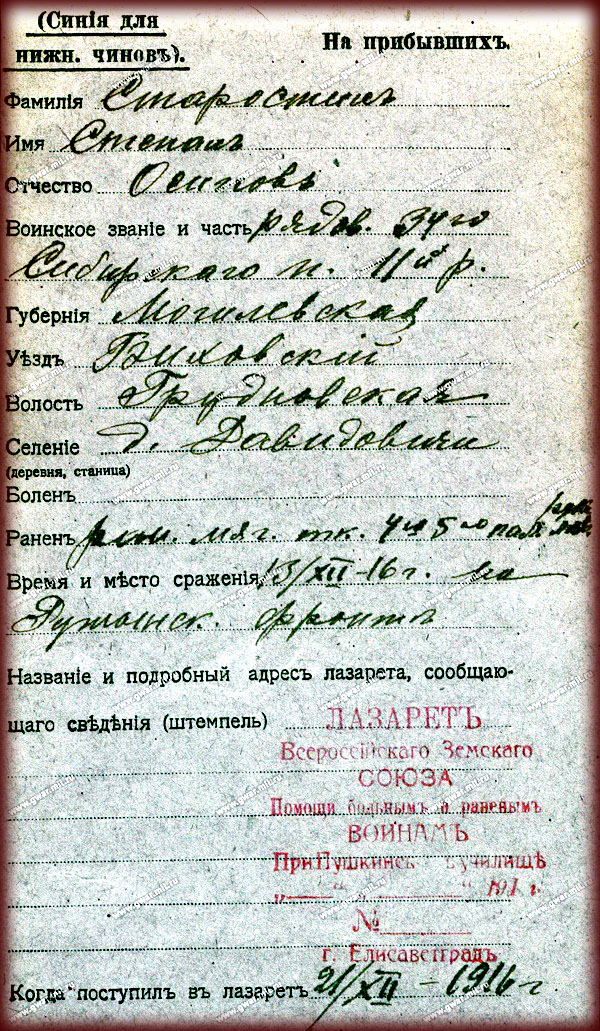 (Синія для
нижн. чиновъ).
На прибывшихъ.
Фамилія Старостинъ
Имя Степанъ
Отчество Осиповъ
Воинское званіе и часть рядов. 34го
Сибирскаго п. 11й р.
Губернія Могилевская
Уѣздъ Быховскій
Волость Грудиновская
Селеніе д. Давидовичи
(деревня, станица)
Боленъ
Раненъ мяг. тк. 4 и 5го
Время и мѣсто сраженія 13/XII-16 г. на
Румынск. фронтѣ
Названіе и подробный адресъ лазарета, сообщаю-
щаго свѣдѣнія (штемпель)
ЛАЗАРЕТЪ
Всероссійскаго Земскаго
СОЮЗА
Помощи больнымъ и раненымъ
ВОИНАМЪ
При Пушкинск училищѣ
"____" ________ 191 г.
№
г. Елисаветградъ
Когда поступилъ въ лазаретъ 21/XII - 1916 г